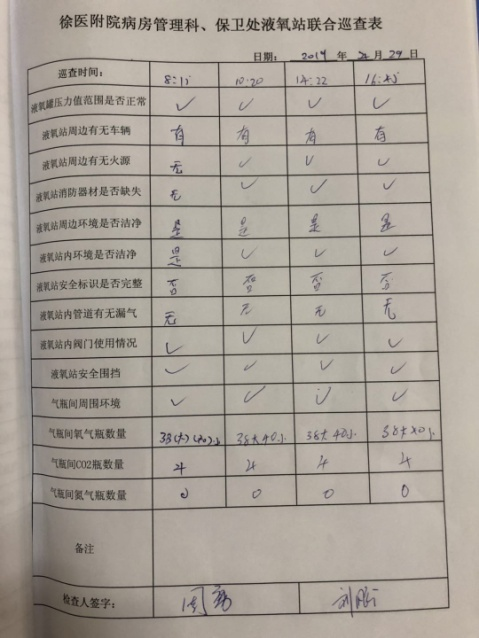 徐医附院病房管理科、保卫处液氧站联合巡查表
日期: 2019 年 月 29 日
巡查时间: 8:15 10:20 14:22 16:45
液氧罐压力值范围是否正常 ✓ ✓ ✓ ✓
液氧站周边有无车辆 有 有 有 有
液氧站周边有无火源 无 ✓ ✓ ✓
液氧站消防器材是否缺失 无 ✓ ✓ ✓
液氧站周边环境是否洁净 是 是 是 是
液氧站内环境是否洁净 是 ✓ ✓ ✓
液氧站安全标识是否完整 否 否 否 否
液氧站内管道有无漏气 无 无 无 无
液氧站内阀门使用情况 ✓ ✓ ✓ ✓
液氧站安全围挡 ✓ ✓ ✓ ✓
气瓶间周围环境 ✓ ✓ ✓ ✓
气瓶间氧气瓶数量 38大40小 38大40小 38大40小
气瓶间CO2瓶数量 4 4 4 4
气瓶间氮气瓶数量 0 0 0 0
备注
检查人签字: